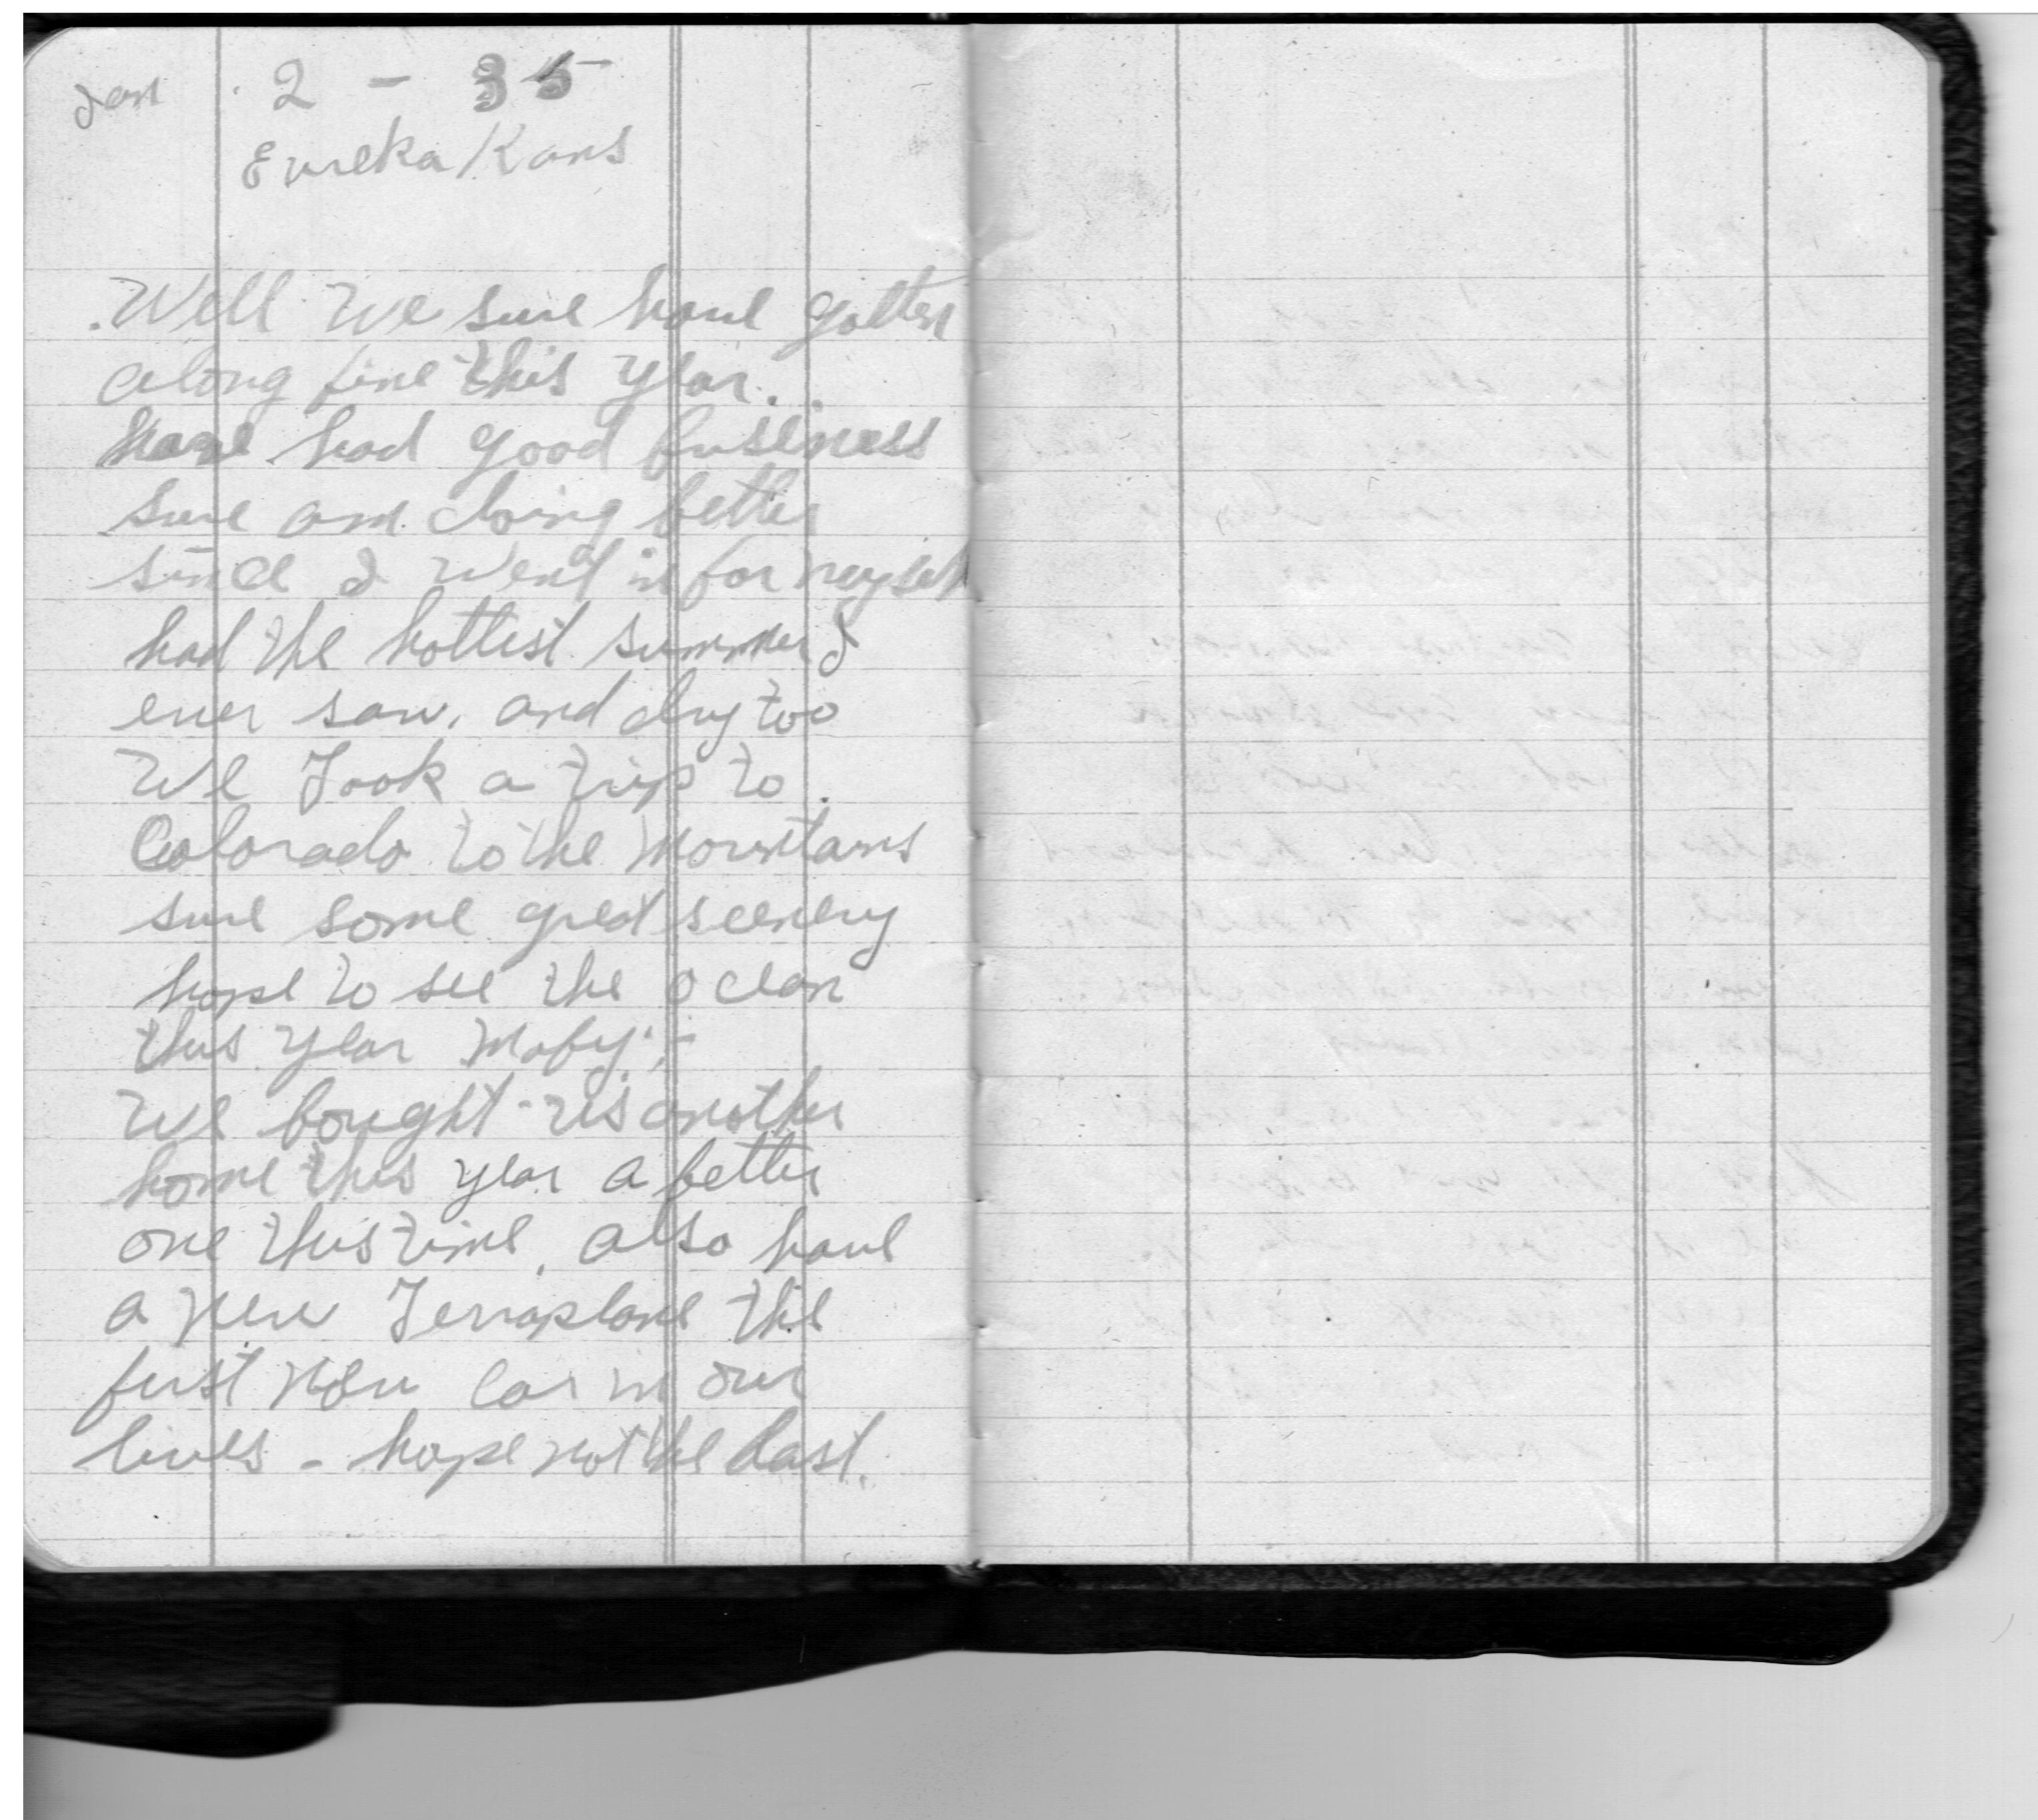 Jan 2 - 35
Eureka Kans
Well we sure have gotten
along fine this year.
have had good business
sure am doing better
since I went in for myself
had the hottest summer I
ever saw, and dry too
We Took a trip to
Colorado to the Mountains
sure some great scenery
hope to see the ocean
this year Maby. -
We bought us another
home this year a better
one this time, also have
a new Terraplane the
first new car in our
lives - hope not the last.